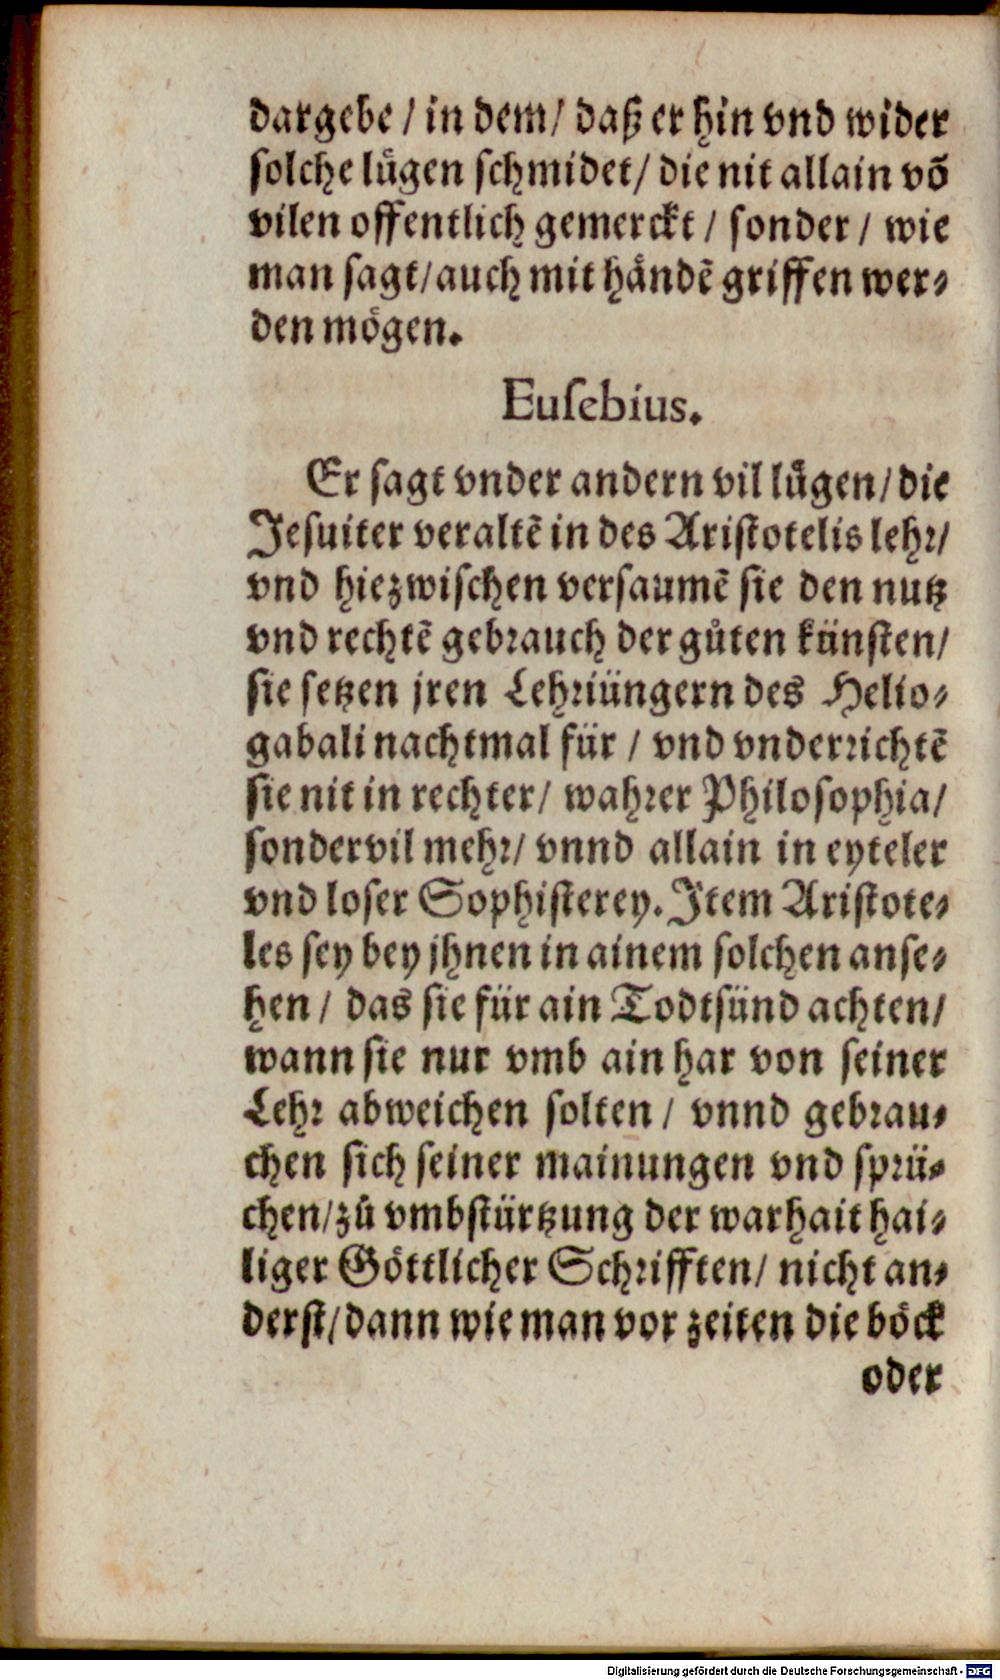 dargebe / in dem / daß er hin vnd wider
solche lůgen schmidet / die nit allain võ
vilen offentlich gemerckt / sonder / wie
man sagt / auch mit håndẽ griffen wer⸗
den mögen.
Eusebius.
Er sagt vnder andern vil lůgen / die
Jesuiter veraltẽ in des Aristotelis lehr /
vnd hiezwischen versaumẽ sie den nutz
vnd rechtẽ gebrauch der gůten künsten /
sie setzen jren Lehriüngern des Helio⸗
gabali nachtmal für / vnd vnderrichtẽ
sie nit in rechter / wahrer Philosophia /
sonder vil mehr / vnnd allain in eyteler
vnd loser Sophisterey. Item Aristote⸗
les sey bey jhnen in ainem solchen anse⸗
hen / das sie für ain Todtsünd achten /
wann sie nur vmb ain har von seiner
Lehr abweichen solten / vnnd gebrau⸗
chen sich seiner mainungen vnd sprü⸗
chen / zů vmbstürtzung der warhait hai⸗
liger Göttlicher Schrifften / nicht an⸗
derst / dann wie man vor zeiten die böck
oder
Digitalisierung gefördert durch die Deutsche Forschungsgemeinschaft - DFG